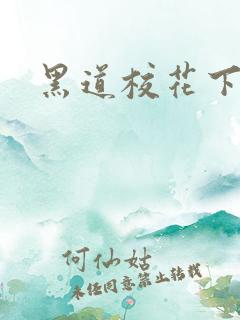 黑道校花下
何仙姑
未经同意禁止转载